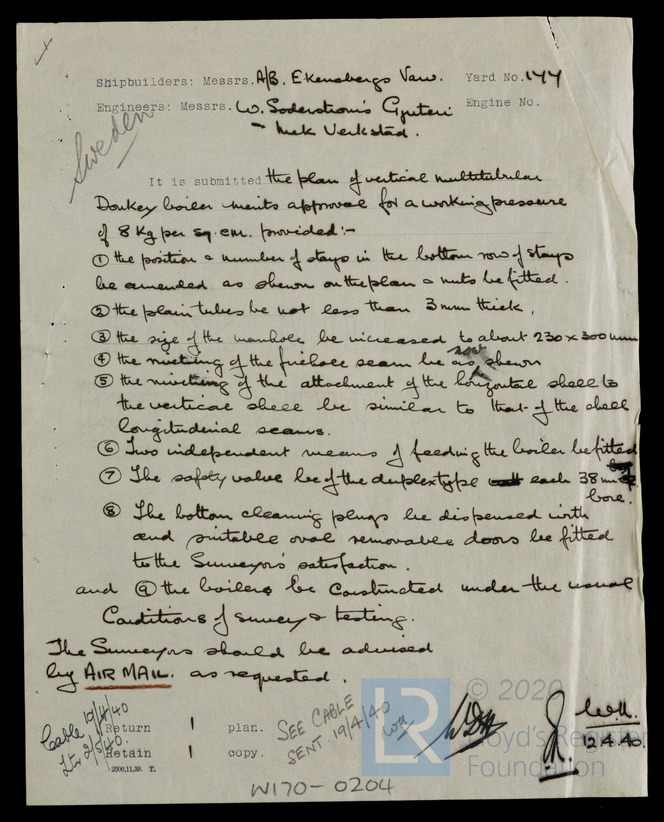 Shipbuilders: Messrs. A/B. Ekensbergs Varv. Yard No. 177
Engineers: Messrs. W. Soderstroms Gjuteri Engine No.
- Mek Verkstad.
Sweden
It is submitted the plan of vertical multitubular
Donkey boiler merits approval for a working pressure
of 8 Kg per sq. cm. provided:-
① the position & number of stays in the bottom row of stays
be amended as shewn on the plan & nuts be fitted.
② the plain tubes be not less than 3 mm thick.
③ the size of the manhole be increased to about 230 x 300 mm
④ the rivetting of the firehole seam be as now shewn
⑤ the rivetting of the attachment of the horizontal shell to
the vertical shell be similar to that of the shell
longitudinal seams.
⑥ Two independent means of feeding the boiler be fitted
⑦ The safety valve be of the duplex type each 38 mm
bore.
⑧ The bottom cleaning plugs be dispensed with
and suitable oval removable doors be fitted
to the Surveyors' satisfaction.
and ⑨ the boiler be constructed under the usual
Conditions of survey & testing.
The Surveyors should be advised
by AIR MAIL. as requested.
Cable 19/4/40
Ltr 2/5/40.
Return 1 plan.
Retain 1 copy.
2500,11,39. T.
SEE CABLE
SENT 19/4/40
WH
WDH
W.H.
12.4.40.
© 2020
LR Lloyd's Register
Foundation
W170-0204